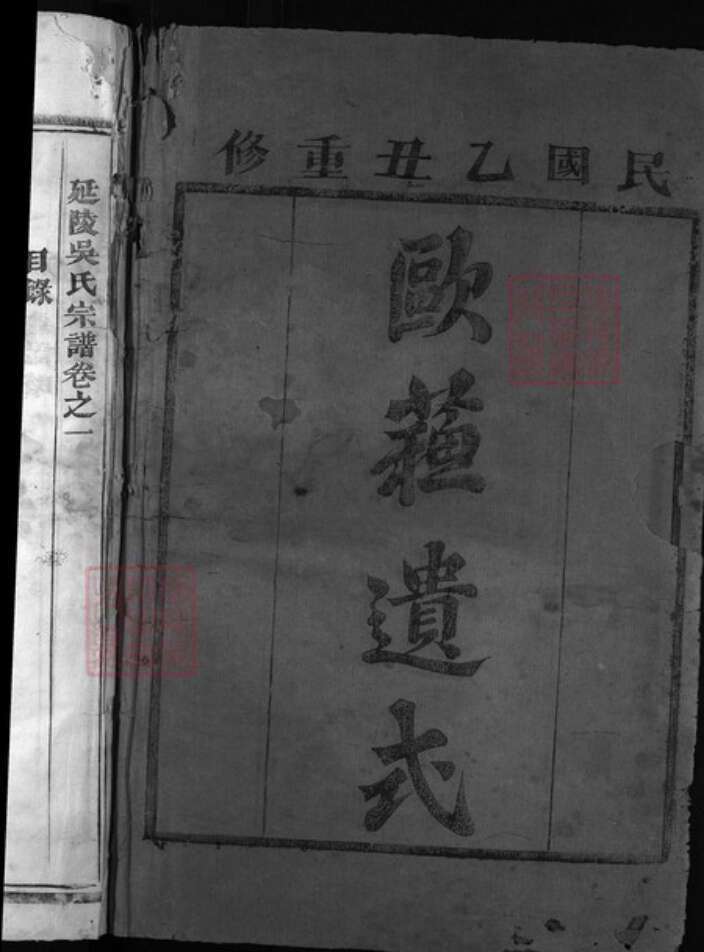 民國乙丑重修
歐蘓遺式
延陵吳氏宗譜卷之一
目錄